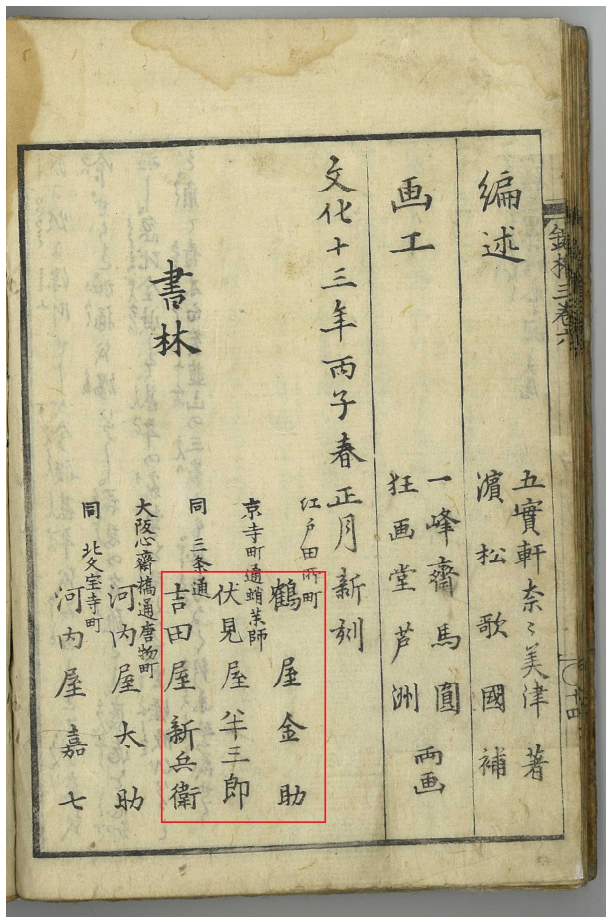 編述
五實軒奈〻美津著
濱松歌國補
画工
一峰齋馬圓
狂画堂芦洲
両画
文化十三年丙子春正月新刻
書林
江戸田所町
鶴屋金助
京寺町通蛸薬師
伏見屋半三郎
同三条通
吉田屋新兵衛
大阪心齋橋通唐物町
河内屋太助
同北久宝寺町
河内屋嘉七